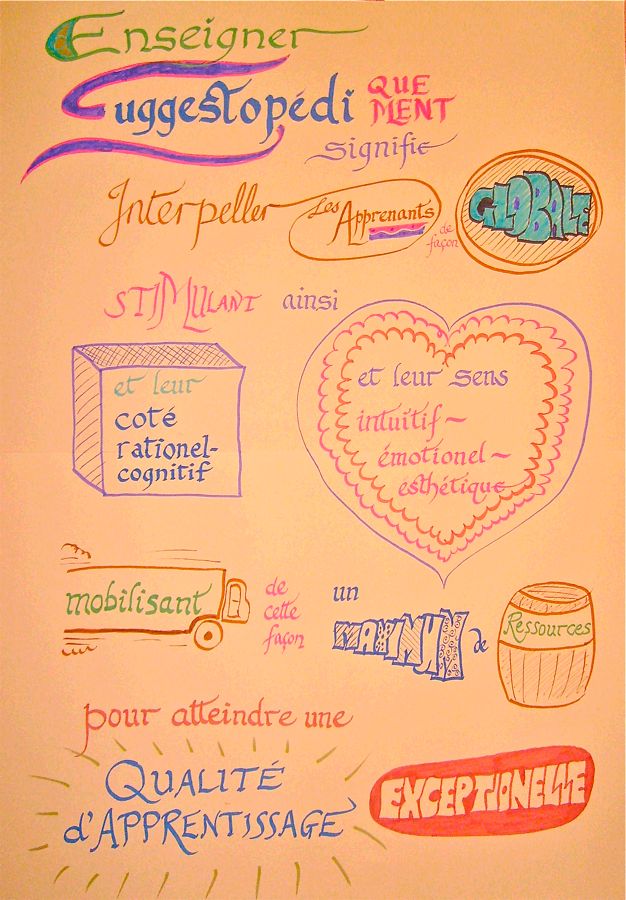 Enseigner
Suggestopédi QUE
MENT
signifie
Interpeller Les Apprenants de façon GLOBALE
STIMULANT ainsi
et leur
coté
rationel-
cognitif
et leur sens
intuitif ~
émotionel ~
esthétique
mobilisant
de
cette
façon
un
MAXIMUM de
Ressources
pour atteindre une
QUALITÉ
d'APPRENTISSAGE
EXCEPTIONELLE